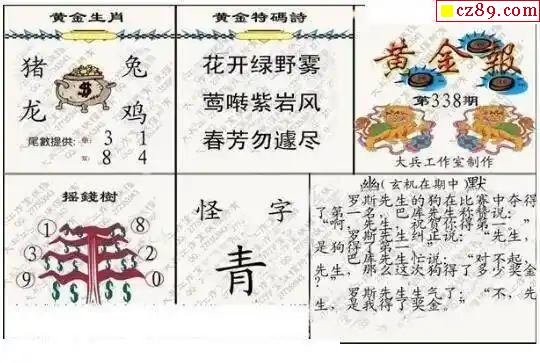 cz89.com
黄金生肖
猪 兔
龙 鸡
尾數提供: 單: 3 1
双: 8 4
黄金特碼詩
花开绿野雾
莺啭紫岩风
春芳勿遽尽
黄金報
第338期
大兵工作室制作
摇錢樹
1 8
3 2
9 0
怪 字
青
幽(玄机在期中)默
罗斯先生的狗在比赛中夺得
了第一名，巴库先生称赞说：
“啊，先生，祝贺你得第一。”
罗斯先生纠正说：“先生，
是狗得了第一。”
巴库先生忙说：“对不起，
先生，那么这次狗得了多少奖金
？”
罗斯先生生气了：“不，先
生，是我得了奖金。”